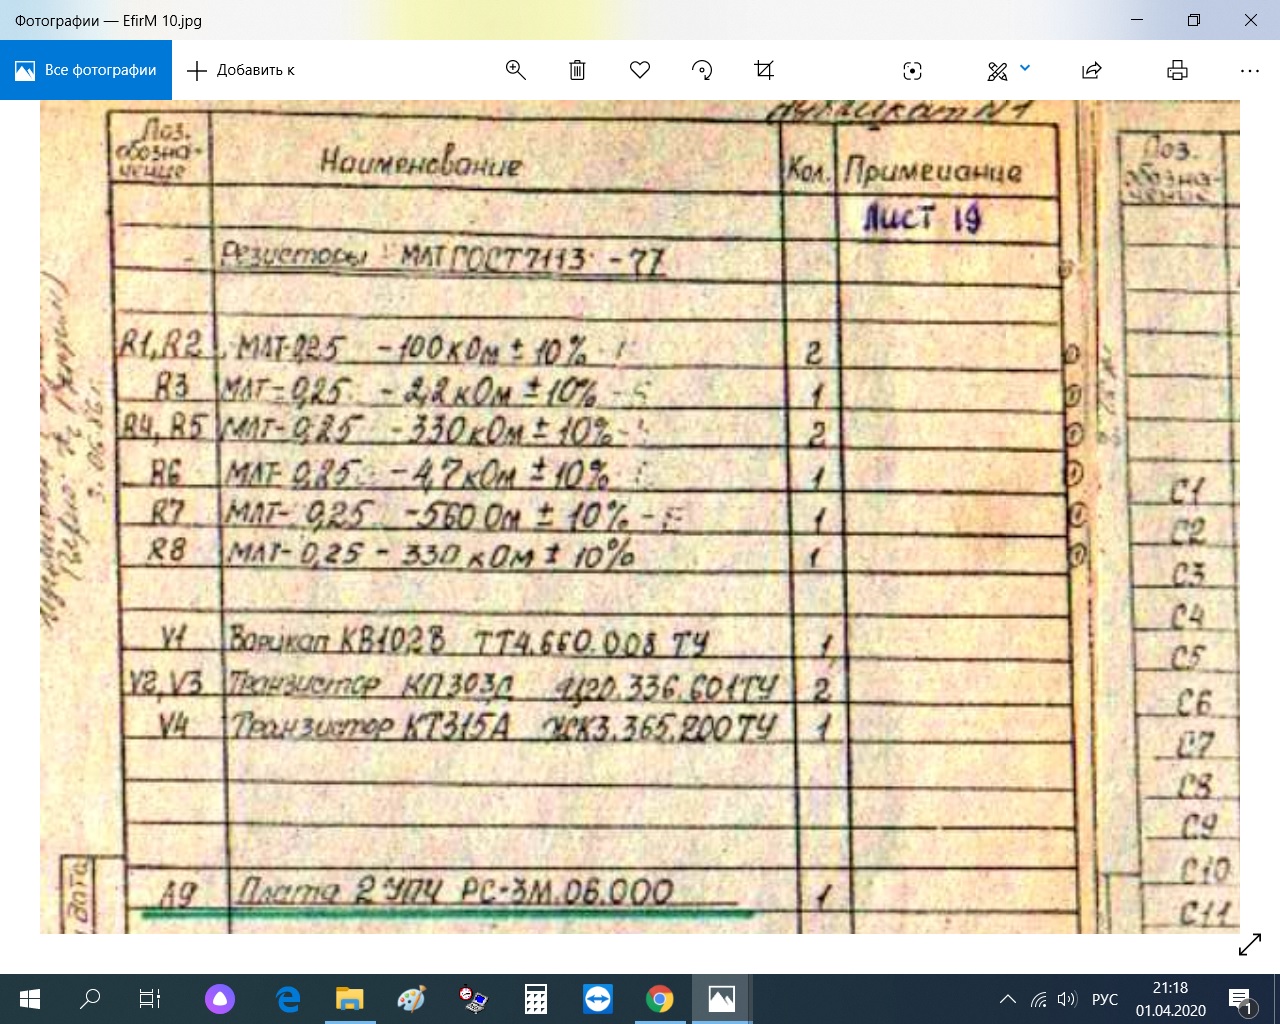 Фотографии — EfirM 10.jpg
Все фотографии
Добавить к
Дубликат N1
Поз. обозна-чение Наименование Кол. Примечание
Лист 19
Резисторы МЛТ ГОСТ 7113-77
R1, R2 МЛТ-0,25 - 100 кОм ± 10% 2
R3 МЛТ-0,25 - 2,2 кОм ± 10% 1
R4, R5 МЛТ-0,25 - 330 кОм ± 10% 2
R6 МЛТ-0,25 - 4,7 кОм ± 10% 1
R7 МЛТ-0,25 - 560 Ом ± 10% 1
R8 МЛТ-0,25 - 330 кОм ± 10% 1
V1 Варикап КВ102В ТТ4.660.008 ТУ 1
V2, V3 Транзистор КП303Д 336.601ТУ 2
V4 Транзистор КТ315А ЖК3.365.200ТУ 1
А9 Плата 2 УПЧ РС-3М.06.000 1
3.06.86г.
дата
Поз.
обозна-
чение
С1
С2
С3
С4
С5
С6
С7
С8
С9
С10
С11
РУС
21:18
01.04.2020
1